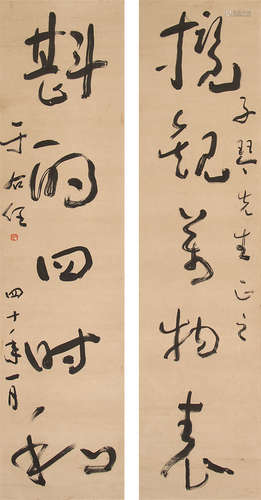 攬觀萬物表
子琴先生正之
斟酌四時和
于右任
四十年一月